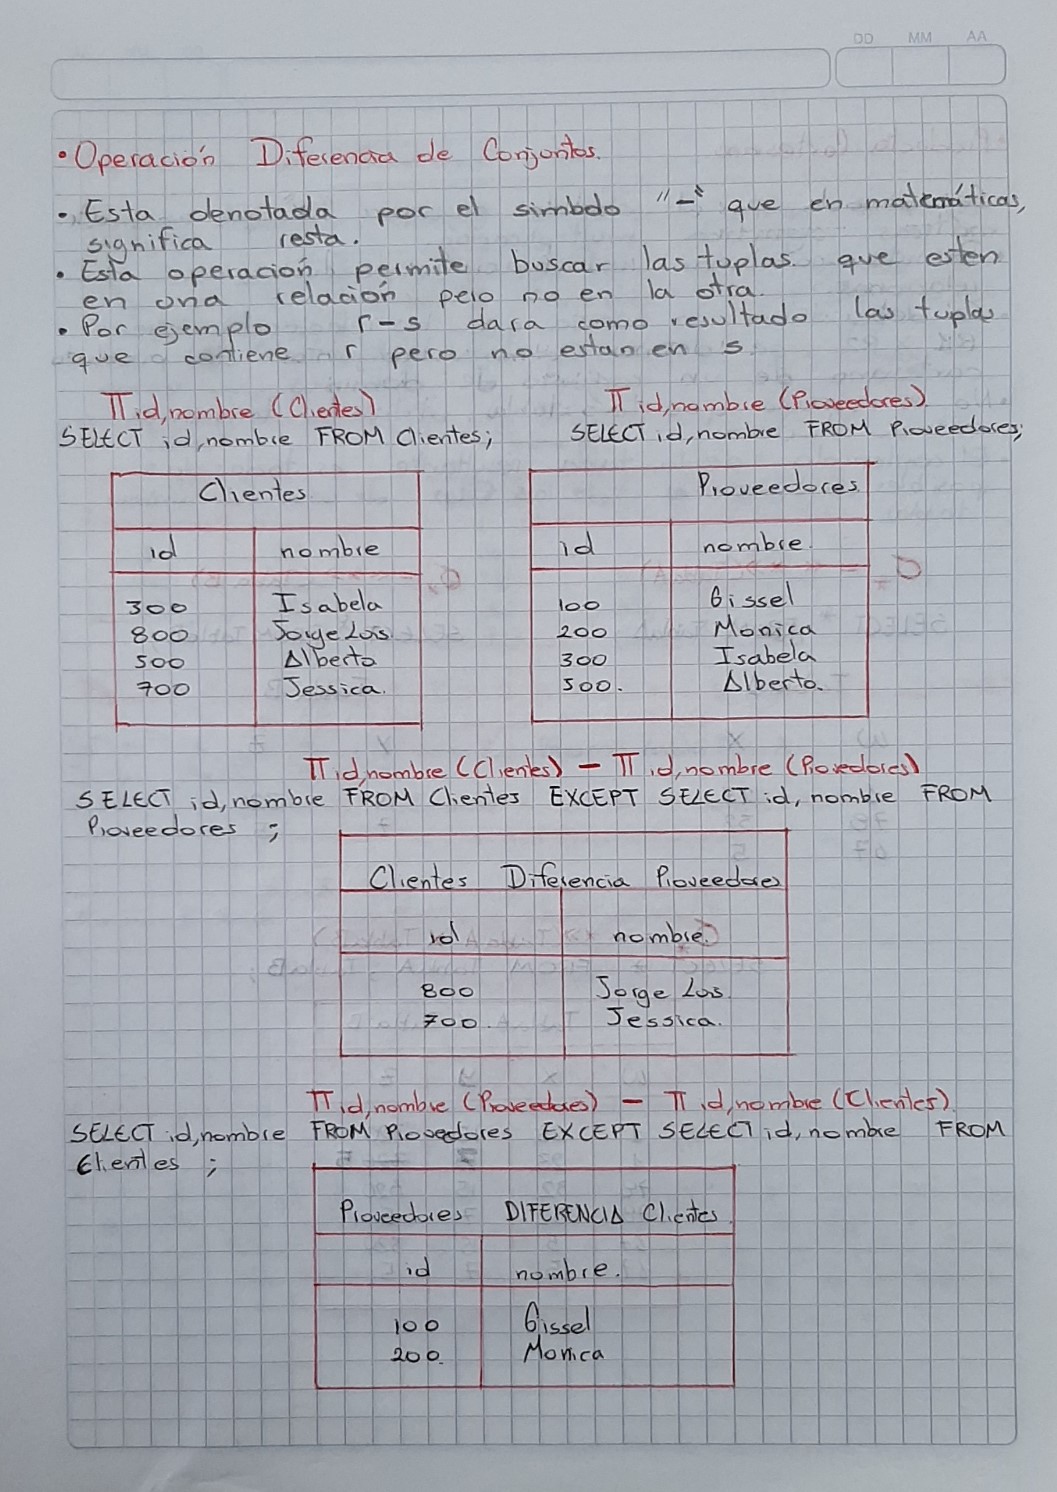 DD MM AA
• Operación Diferencia de Conjuntos.
• Esta denotada por el simbolo "-" que en matemáticas,
significa resta.
• Esta operación permite buscar las tuplas que esten
en una relación pero no en la otra.
• Por ejemplo r-s dara como resultado las tuplas
que contiene r pero no estan en s.
π id,nombre (Clientes) π id,nombre (Proveedores)
SELECT id,nombre FROM Clientes; SELECT id,nombre FROM Proveedores;
Clientes Proveedores
id nombre id nombre.
300 Isabela 100 Gissel
800 Jorge Luis 200 Monica
500 Alberto 300 Isabela
700 Jessica. 500. Alberto.
π id,nombre (Clientes) - π id,nombre (Provedores)
SELECT id,nombre FROM Clientes EXCEPT SELECT id, nombre FROM
Proveedores ;
Clientes Diferencia Proveedores
id nombre.
800 Jorge Luis.
700. Jessica.
π id,nombre (Proveedores) - π id,nombre (Clientes)
SELECT id,nombre FROM Provedores EXCEPT SELECT id, nombre FROM
Clientes ;
Proveedores DIFERENCIA Clientes
id nombre.
100 Gissel
200. Monica